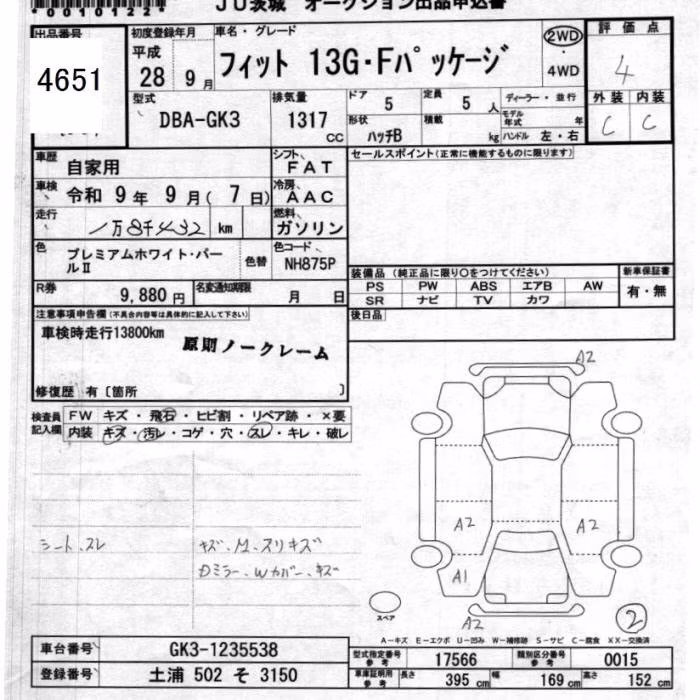 *00101222*
JU茨城 オークション出品申込書
出品番号 初度登録年月 車名・グレード 2WD・4WD 評価点
4651 平成 28 9月 フィット 13G・Fパッケージ 4
型式 DBA-GK3 排気量 1317 CC ドア 5 定員 5 人 ディーラー・並行 外装 内装
形状 ハッチB 積載 kg モデル年式 年 ハンドル 左・右 C C
車歴 自家用 シフト FAT セールスポイント(正常に機能するものに限ります)
車検 令和 9年 9月( 7日) 冷房 AAC
走行 1万8千432 km 燃料 ガソリン
色 プレミアムホワイト・パールⅡ 色替 色コード NH875P
装備品(純正品に限り○をつけてください) 新車保証書
R券 9,880円 名変通知期限 月 日 PS PW ABS エアB AW 有・無
SR ナビ TV カワ
注意事項申告欄(不具合内容等は具体的に記入して下さい) 後日品
車検時走行13800km 原則ノークレーム
修復歴 有〔箇所 〕
検査員記入欄 FW キズ・飛石・ヒビ割・リペア跡・×要
内装 キズ・汚レ・コゲ・穴・スレ・キレ・破レ
A2
A2 A2
シート、スレ キズ、M、スリキズ
Dミラー、Wカバー、キズ A1
スペア A2 2
A-キズ E-エクボ U-凹み W-補修跡 S-サビ C-腐食 XX-交換済
車台番号 GK3-1235538 型式指定番号 参考 17566 類別区分番号 参考 0015
登録番号 土浦 502 そ 3150 車庫証明用 参考 長さ 395 cm 幅 169 cm 高さ 152 cm